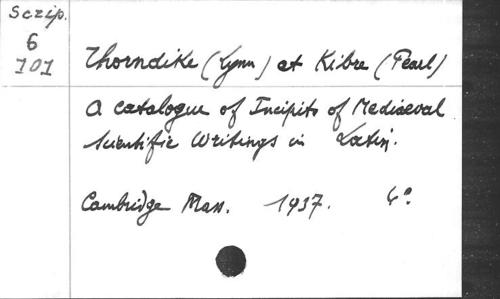 Scrip.
6
101
Thorndike (Lynn) et Kibre (Pearl)
A catalogue of Incipits of Mediaeval
Scientific Writings in Latin.
Cambridge Mass. 1937. 4°.